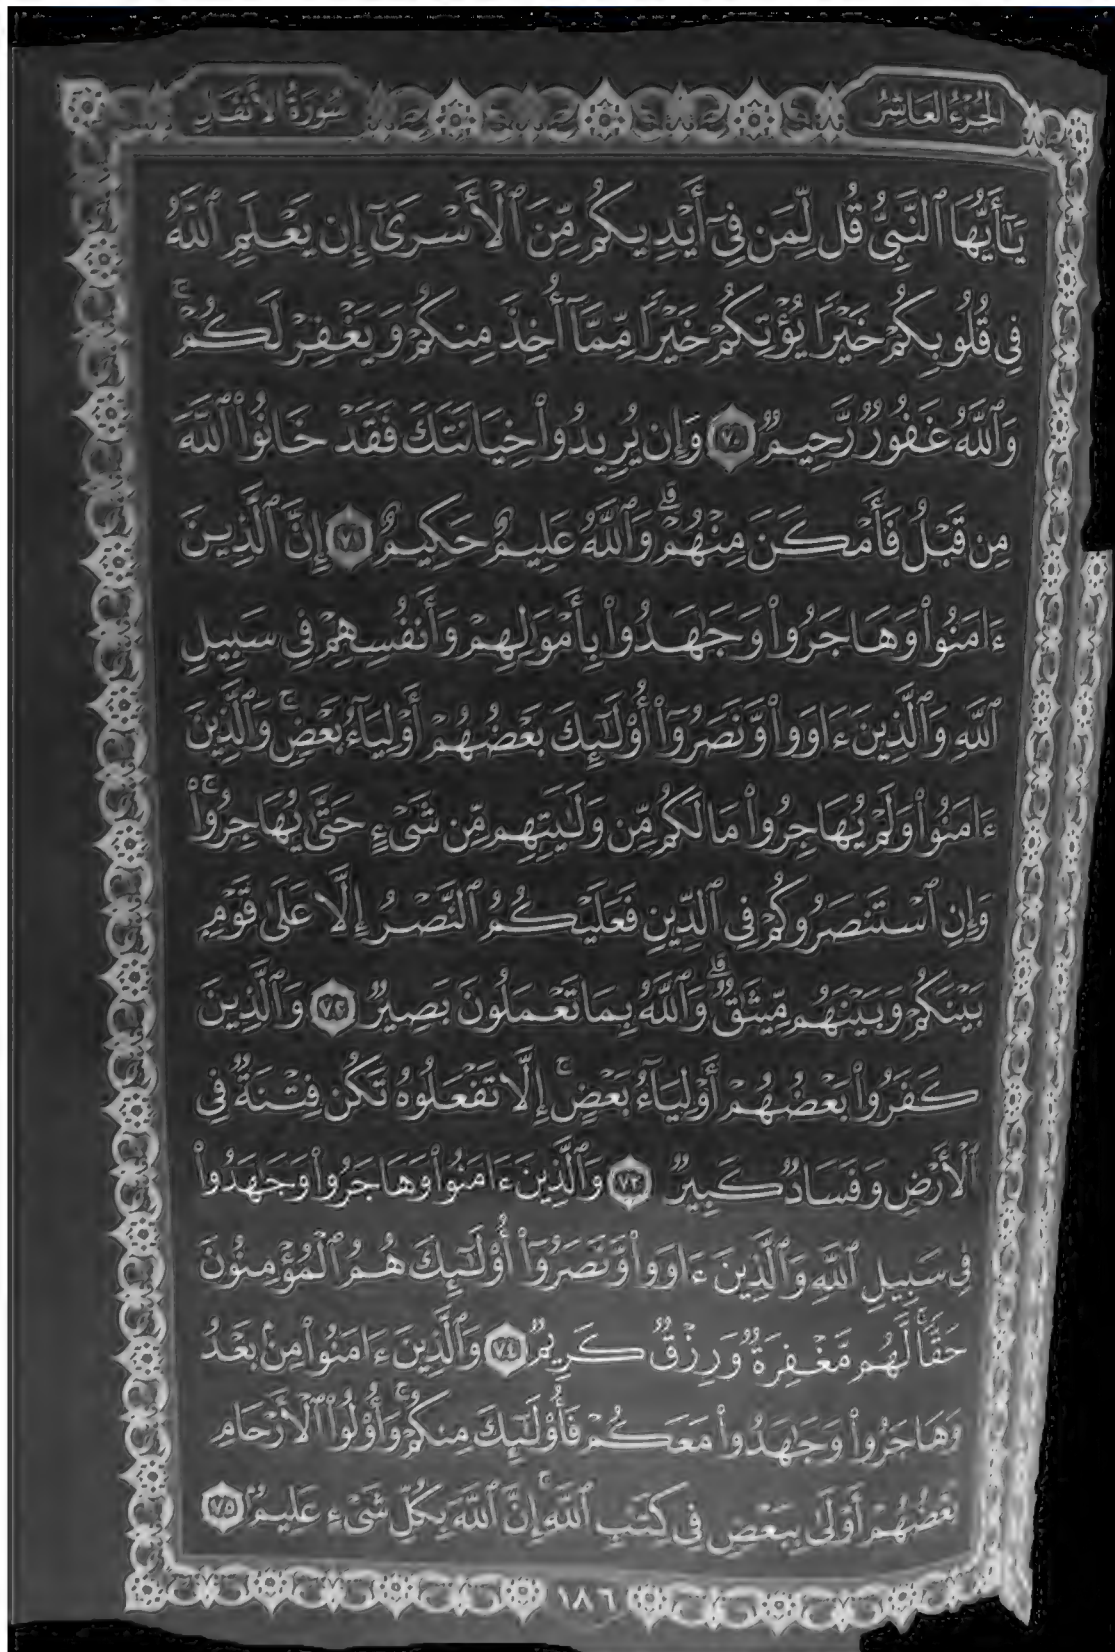 الجزء العاشر
سورة الأنفال
يَٰٓأَيُّهَا ٱلنَّبِيُّ قُل لِّمَن فِيٓ أَيۡدِيكُم مِّنَ ٱلۡأَسۡرَىٰٓ إِن يَعۡلَمِ ٱللَّهُ
فِي قُلُوبِكُمۡ خَيۡرٗا يُؤۡتِكُمۡ خَيۡرٗا مِّمَّآ أُخِذَ مِنكُمۡ وَيَغۡفِرۡ لَكُمۡۚ
وَٱللَّهُ غَفُورٞ رَّحِيمٞ ٧٠ وَإِن يُرِيدُواْ خِيَانَتَكَ فَقَدۡ خَانُواْ ٱللَّهَ
مِن قَبۡلُ فَأَمۡكَنَ مِنۡهُمۡۗ وَٱللَّهُ عَلِيمٌ حَكِيمٌ ٧١ إِنَّ ٱلَّذِينَ
ءَامَنُواْ وَهَاجَرُواْ وَجَٰهَدُواْ بِأَمۡوَٰلِهِمۡ وَأَنفُسِهِمۡ فِي سَبِيلِ
ٱللَّهِ وَٱلَّذِينَ ءَاوَواْ وَّنَصَرُوٓاْ أُوْلَٰٓئِكَ بَعۡضُهُمۡ أَوۡلِيَآءُ بَعۡضٖۚ وَٱلَّذِينَ
ءَامَنُواْ وَلَمۡ يُهَاجِرُواْ مَا لَكُم مِّن وَلَٰيَتِهِم مِّن شَيۡءٍ حَتَّىٰ يُهَاجِرُواْۚ
وَإِنِ ٱسۡتَنصَرُوكُمۡ فِي ٱلدِّينِ فَعَلَيۡكُمُ ٱلنَّصۡرُ إِلَّا عَلَىٰ قَوۡمِۭ
بَيۡنَكُمۡ وَبَيۡنَهُم مِّيثَٰقٞۗ وَٱللَّهُ بِمَا تَعۡمَلُونَ بَصِيرٞ ٧٢ وَٱلَّذِينَ
كَفَرُواْ بَعۡضُهُمۡ أَوۡلِيَآءُ بَعۡضٍۚ إِلَّا تَفۡعَلُوهُ تَكُن فِتۡنَةٞ فِي
ٱلۡأَرۡضِ وَفَسَادٞ كَبِيرٞ ٧٣ وَٱلَّذِينَ ءَامَنُواْ وَهَاجَرُواْ وَجَٰهَدُواْ
فِي سَبِيلِ ٱللَّهِ وَٱلَّذِينَ ءَاوَواْ وَّنَصَرُوٓاْ أُوْلَٰٓئِكَ هُمُ ٱلۡمُؤۡمِنُونَ
حَقّٗاۚ لَّهُم مَّغۡفِرَةٞ وَرِزۡقٞ كَرِيمٞ ٧٤ وَٱلَّذِينَ ءَامَنُواْ مِنۢ بَعۡدُ
وَهَاجَرُواْ وَجَٰهَدُواْ مَعَكُمۡ فَأُوْلَٰٓئِكَ مِنكُمۡۚ وَأُوْلُواْ ٱلۡأَرۡحَامِ
بَعۡضُهُمۡ أَوۡلَىٰ بِبَعۡضٖ فِي كِتَٰبِ ٱللَّهِۚ إِنَّ ٱللَّهَ بِكُلِّ شَيۡءٍ عَلِيمٞ ٧٥
١٨٦